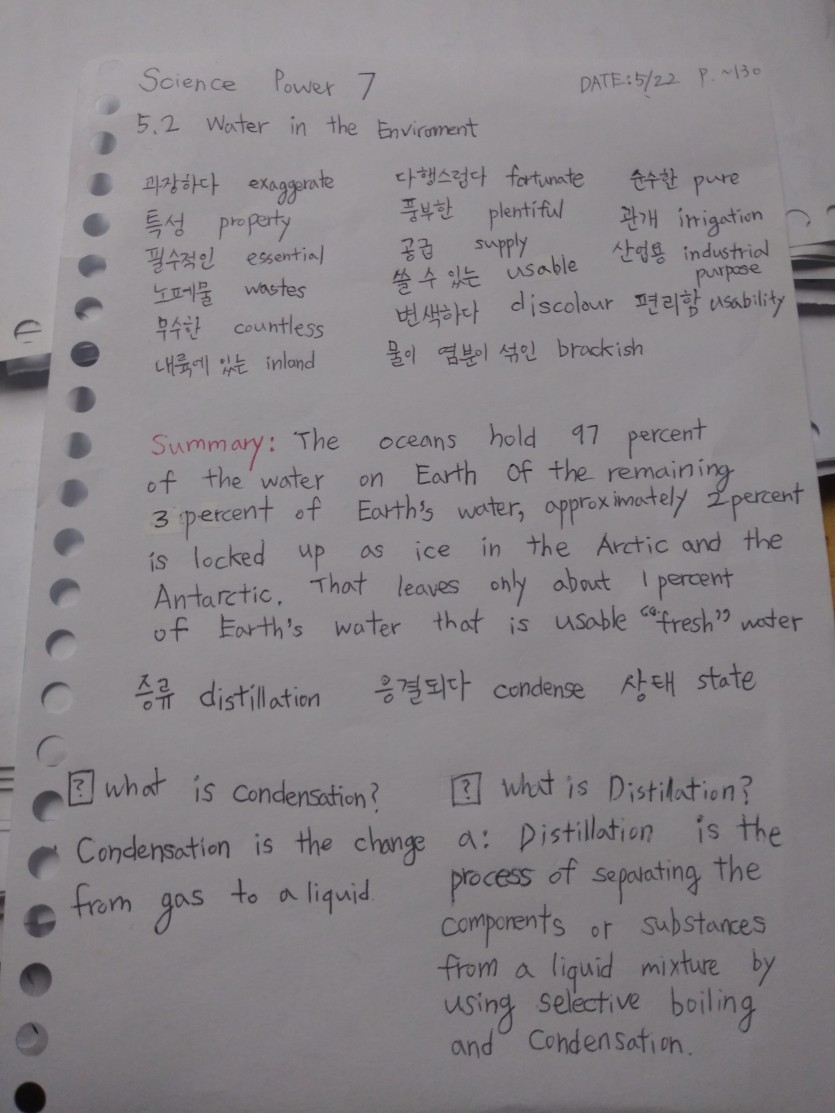 Science Power 7 DATE: 5/22 P. ~130
5.2 Water in the Enviroment
과장하다 exaggerate 다행스럽다 fortunate 순수한 pure
특성 property 풍부한 plentiful 관개 irrigation
필수적인 essential 공급 supply 산업용 industrial purpose
노폐물 wastes 쓸 수 있는 usable
무수한 countless 변색하다 discolour 편리함 usability
내륙에 있는 inland 물이 염분이 섞인 brackish
Summary: The oceans hold 97 percent
of the water on Earth Of the remaining
3 percent of Earth's water, approximately 2 percent
is locked up as ice in the Arctic and the
Antarctic. That leaves only about 1 percent
of Earth's water that is usable "fresh" water
증류 distillation 응결되다 condense 상태 state
? What is Condensation?
Condensation is the change
from gas to a liquid.
? What is Distilation?
a: Distillation is the
process of separating the
components or substances
from a liquid mixture by
using selective boiling
and Condensation.